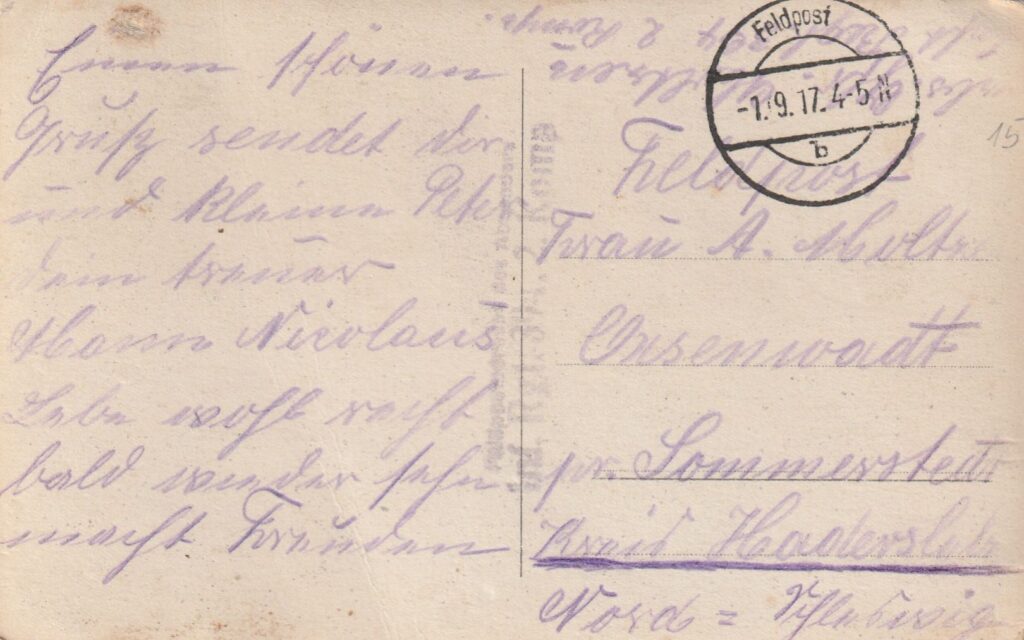 Einen schönen
Gruß sendet dir
und kleine Peter
dein treuer
Mann Nicolaus
Lebe wohl recht
bald wieder sehn
macht Freuden
Feldpost
-1.9.17.4-5 N
b
15
Feldpost
Frau A.
Oxenwadt
pr. Sommerstedt
Kreis Hadersleben
Nord = Schleswig